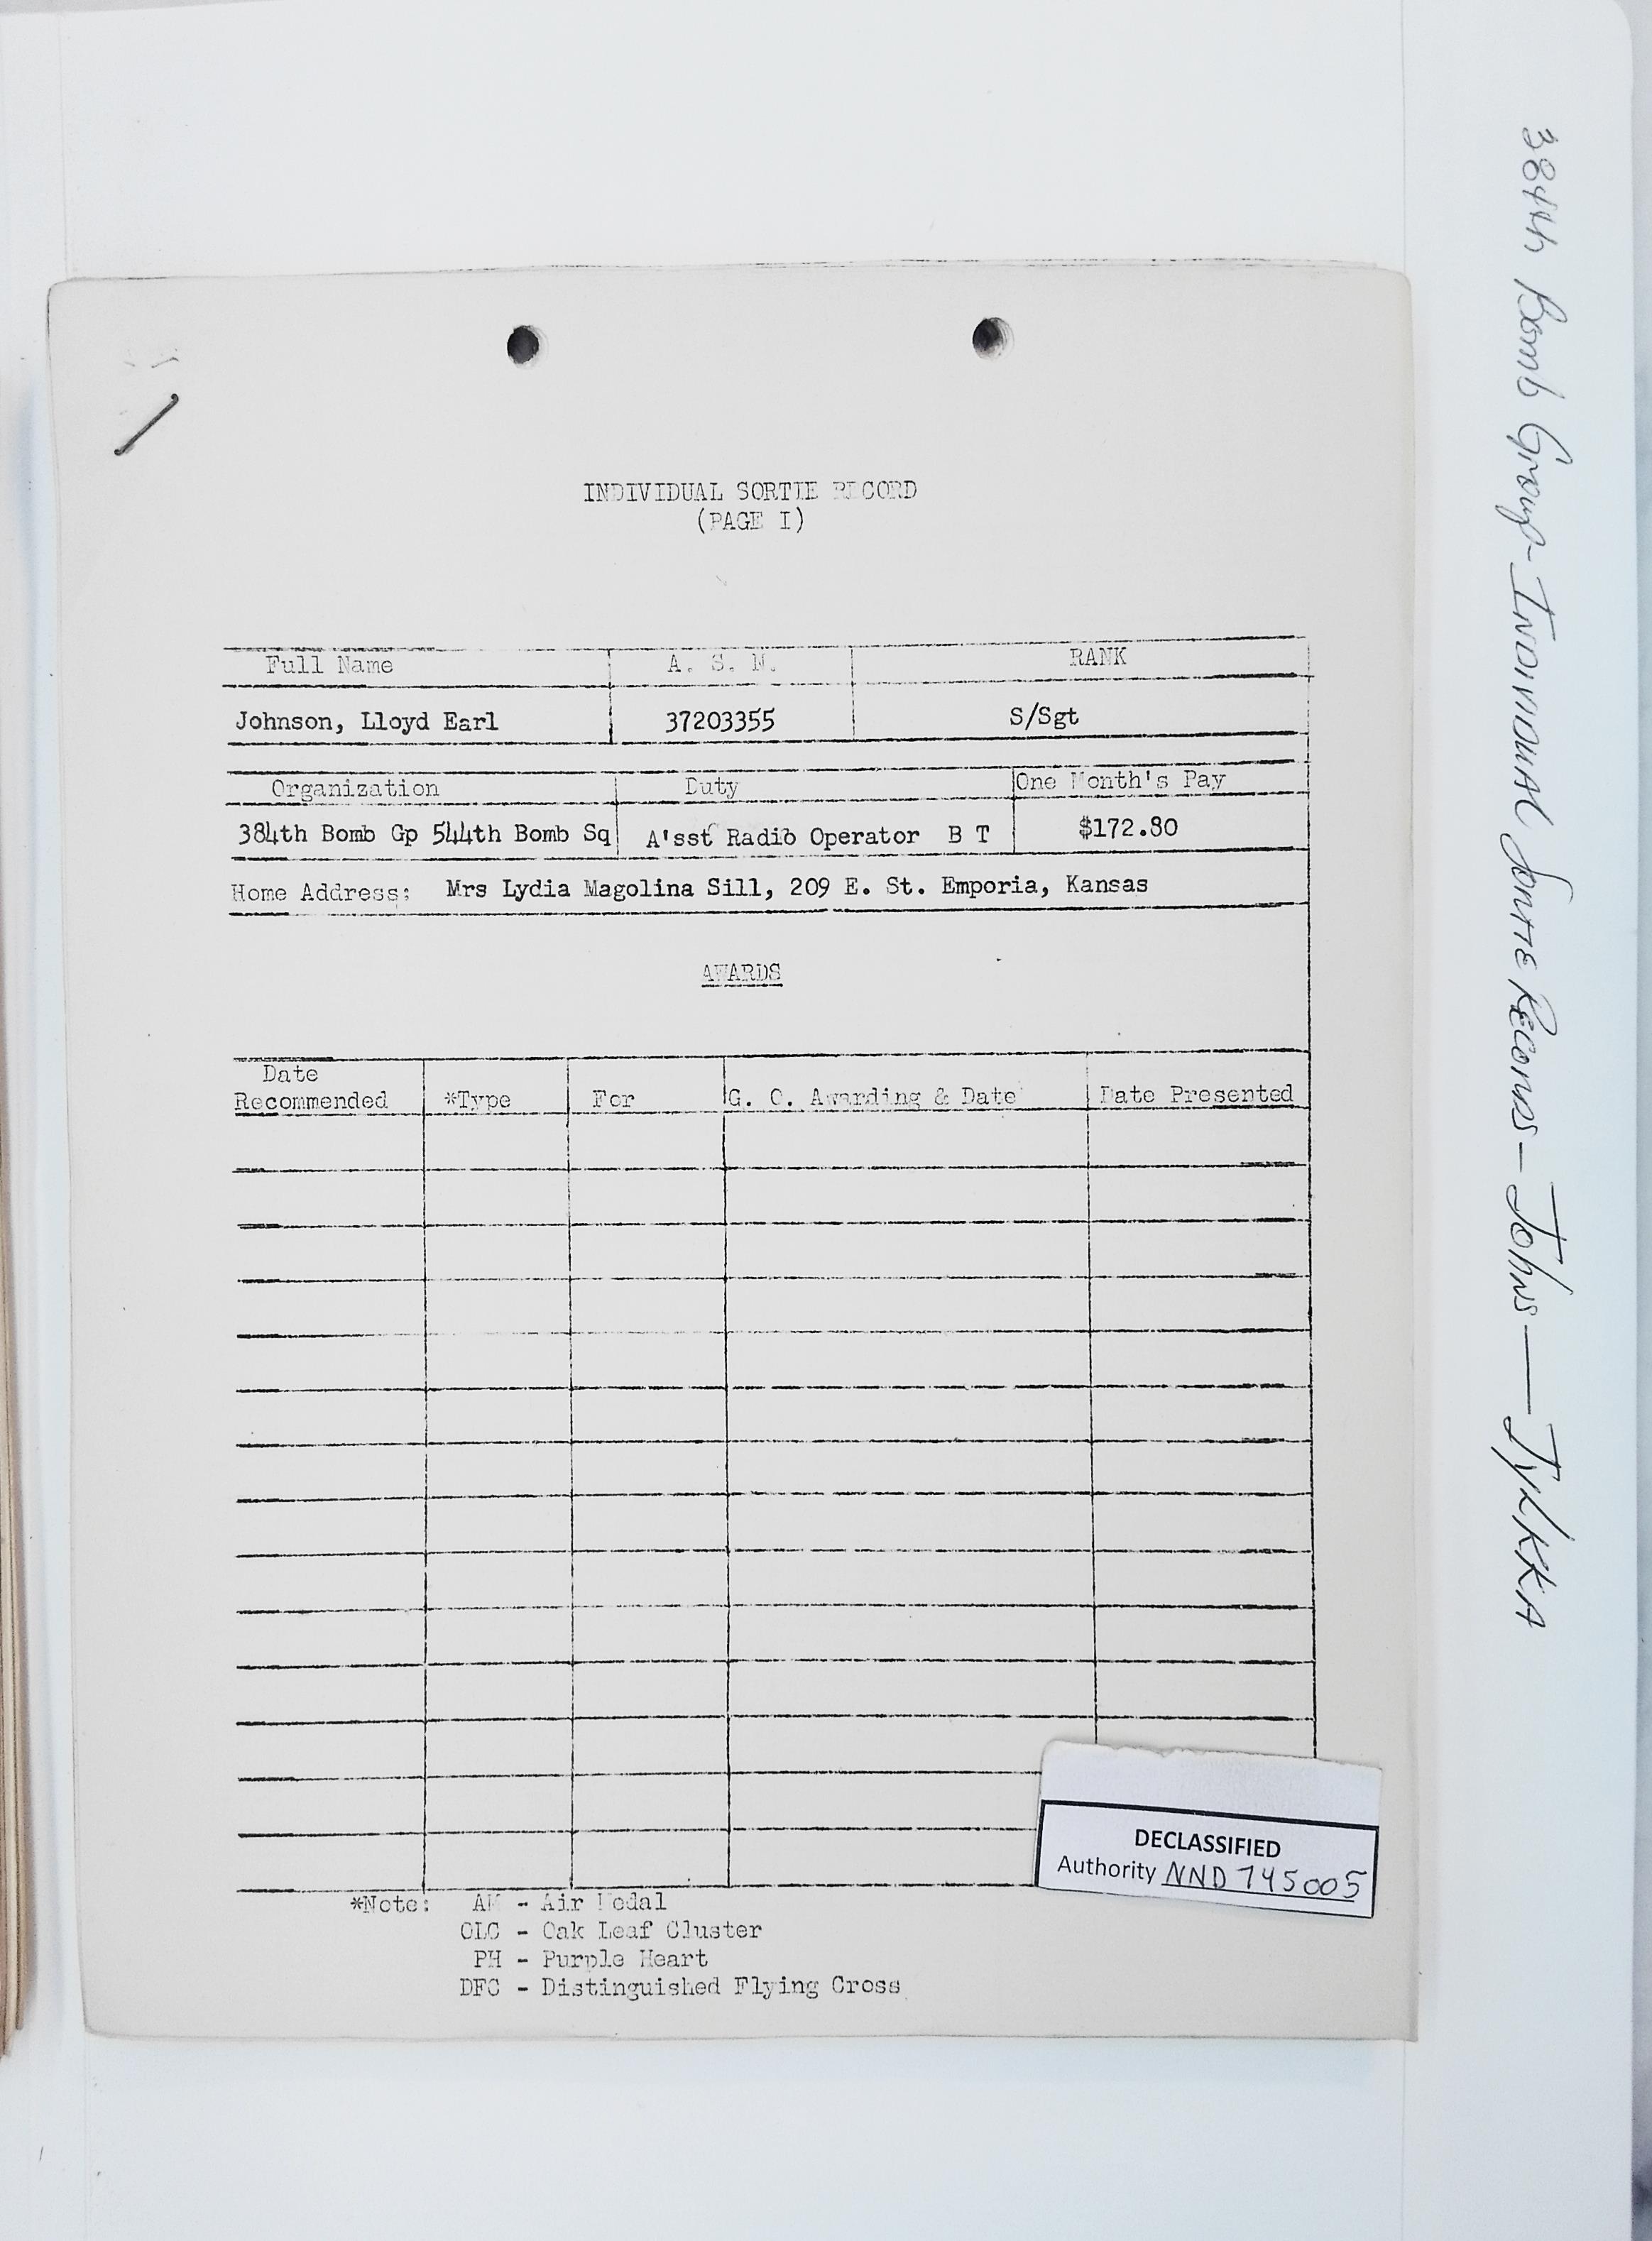 INDIVIDUAL SORTIE RECORD
(PAGE I)
Full Name A. S. N. RANK
Johnson, Lloyd Earl 37203355 S/Sgt
Organization Duty One Month's Pay
384th Bomb Gp 544th Bomb Sq A'sst Radio Operator B T $172.80
Home Address: Mrs Lydia Magolina Sill, 209 E. St. Emporia, Kansas
AWARDS
Date
Recommended *Type For G. O. Awarding & Date Date Presented
DECLASSIFIED
Authority NND 745005
*Note: AM - Air Medal
OLC - Oak Leaf Cluster
PH - Purple Heart
DFC - Distinguished Flying Cross
384th Bomb Group - INDIVIDUAL SORTIE RECORDS - Johns — JYLKKA